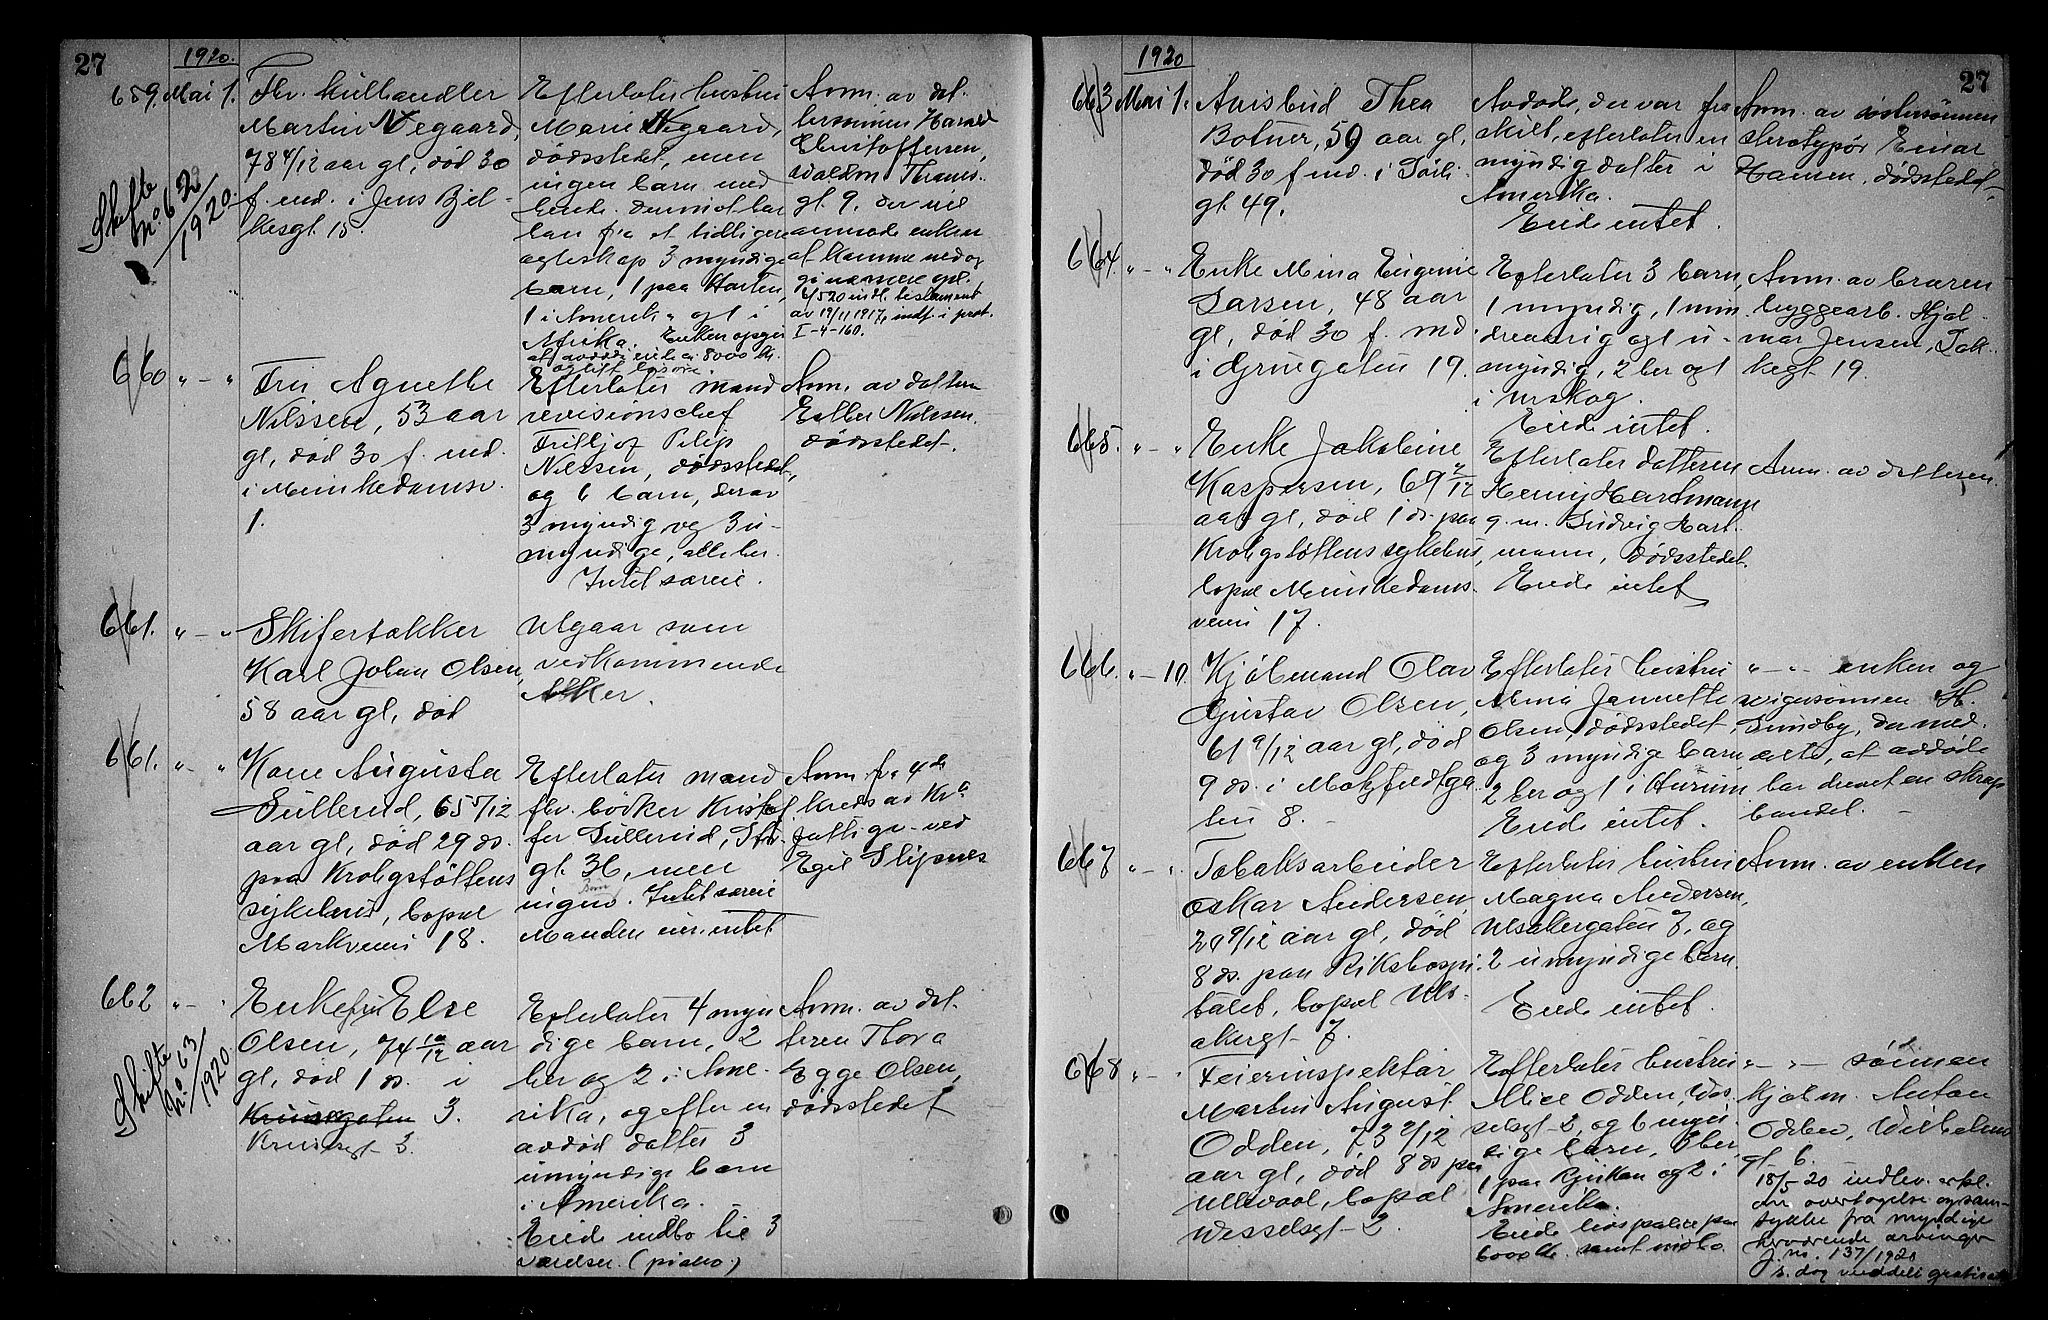 27
1920.
659. Mai 1.
Skifte
No 62
/1920
Fhv. kulhandler
Martin Negaard,
78 4/12 aar gl, död 30
f. md. i Jens Bjel-
kesgt. 15.
Efterlater hustru
Marie Negaard,
dödsstedet, men
ingen barn med
hende. Derimot har
han fra et tidligere
egteskap 3 myndige
barn, 1 paa Hasten,
1 i Amerika og 1 i
Afrika. Enken opgir
at avdöde eide ca. 8000 kr.
og litt lösöre.
Anm. av dat.
tersönnen Harald
Christoffersen,
Waldem. Thranes.
gt. 9. der vil
anmode enken
at komme ned og
gi nærmere opl.
4/5 20 indl. testament
av 19/11 1917, indf. i prot.
I-4-160.
660 " — "
Fru Agnethe
Nilssen, 53 aar
gl, död 30 f. md.
i Munkedamsv.
1.
Efterlater mand
revisionschef
Fritljof Pilip
Nilssen, dödsstedet,
og 6 barn, derav
3 myndig og 3 u-
myndige, alle her.
Intet særeie.
Anm. av datteren
Esther Nilssen,
dödsstedet.
661. " — "
Skifertækker
Karl Johan Olsen,
58 aar gl, död
Utgaar som
vedkommende
Aker.
661. " — "
Kone Augusta
Sullerud, 65 5/12
aar gl, död 29 ds.
paa Krohgstöttens
sykehus, bopæl
Markveien 18.
Efterlater mand
fhv. bödker Kristof
fer Sullerud,
gt. 36, men
ingen Barn. Intet særeie
Manden eier intet
Anm. fra 4de
kreds av Kra
fattigv. ved
Egil Slipnes
662 " — "
Skifte
No 63
/1920.
Enkefru Else
Olsen, 74 10/12 aar
gl, död 1 ds. i
Krusesgaten 3.
Krusesgt 3.
Efterlater 4 myn
dige barn, 2
her og 2 i Ame-
rika, og efter en
avdöd datter 3
umyndige barn
i Amerika.
Eiede indbo til 3
værelser. (piano)
Anm. av dat.
teren Thora
Egge Olsen,
dödsstedet
27
1920
663 Mai 1.
Anisbud Thea
Botner, 59 aar gl,
död 30 f md. i Sörli-
gt. 49.
Avdöde, der var fra
skilt, efterlater en
myndig datter i
Amerika.
Eiede intet.
Anm. av söstersönnen
sterotypör Einar
Hansen, dödsstedet
664. " — "
Enke Mina Eugenie
Larsen, 48 aar
gl, död 30 f. md.
i Grünegaten 19.
Efterlater 3 barn,
1 myndig, 1 min
dreaarig og 1 u-
myndig, 2 her og 1
i Urskog.
Eiede intet.
Anm. av broren
byggearb. Hjal-
mar Jensen, Bak-
kegt. 19.
665. " — "
Enke Jakobine
Kaspersen, 69 /12
aar gl, död 1 ds. paa
Krohgstöttens sykehus,
bopæl Munkedams-
veien 17.
Efterlater datteren
Henny Hartmann
g. m. Ludvig Hart-
mann, dödsstedet.
Eiede intet
Anm. av datteren.
666. " — 10.
Kjöbmand Olav
Gustav Olsen,
61 9/12 aar gl, död
9 ds. i Motzfeldtga-
ten 8. -
Efterlater hustru
Anna Jannette
Olsen, dödsstedet,
og 3 myndige barn
2 her og 1 i Hurum
Eiede intet.
" — " — enken og
svigersönnen H.
Sundby, der med-
delte, at avdöde
har drevet en skrap
handel.
667 " — "
Tobaksarbeider
Oskar Andersen,
29 9/12 aar gl, död
8 ds. paa Rikshospi-
talet, bopæl Uls-
akergt. 7.
Efterlater hustru
Magna Andersen,
Ulsakergaten 7, og
2 umyndige barn.
Eiede intet.
Anm. av enken
668 " — "
Feierinspektör
Martin August
Odden, 73 2/12
aar gl, död 8 ds paa
Ullevaal, bopæl
Wesselsgt 2.
Efterlater hustru
Alice Odden, Wes
selsgt 2, og 6 myn-
dige barn, 3 her
1 paa Rjukan og 2 i
Amerika.
Eiede livspolice paa
6000 kr. samt indbo
" — " — sönnen
kjölm. Anton
Odden, Wilhelms
gt. 6.
18/5-20 indlev. erkl.
om overtagelse og sam-
tykke fra myndige
herværende arvinger
J. no. 137/1920
s. dag meddelt